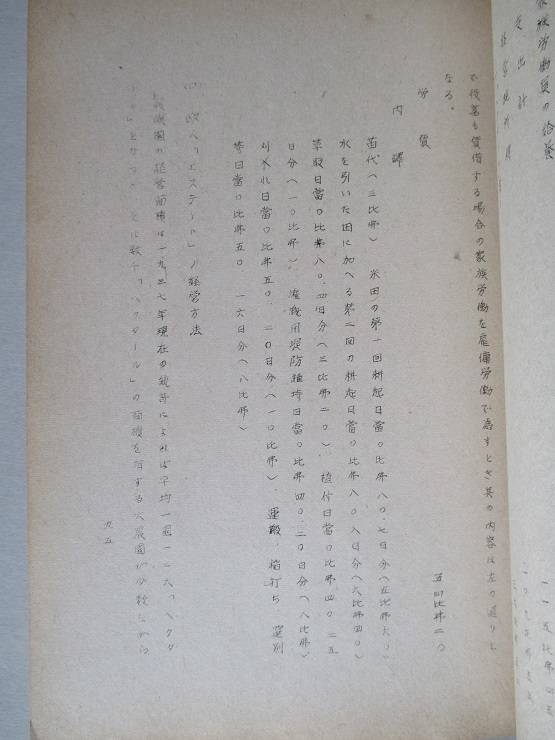 で役畜も賃借する場合の家族労働を雇傭労働で為すとき其の内容は左の通りと
なる。
労賃　五四比弗二〇
内訳
苗代（三比弗） 水田の第一回耕起日当〇比弗八〇、七日分（五比弗六〇）
水を引いた田に加へる第二回の耕起日当〇比弗八〇、八日分（六比弗四〇）
草取日当〇比弗八〇、四日分（三比弗二〇） 植付日当〇比弗四〇、二五
日分（一〇比弗） 灌漑用堤防維持日当〇比弗四〇、二〇日分（八比弗）
刈入れ日当〇比弗五〇、二〇日分（一〇比弗）、運搬 稲打ち 選別
等日当〇比弗五〇 一六日分（八比弗）
欧人「エステート」ノ経営方法
農園の経営面積は一九三七年現在の統計によれば平均一園一二六「ヘクタ
数千「ヘクタール」の面積を有する大農園が少数ながら
九五